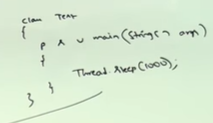 class Test
{
p s v main(String[] args)
{
Thread.sleep(1000);
}
}